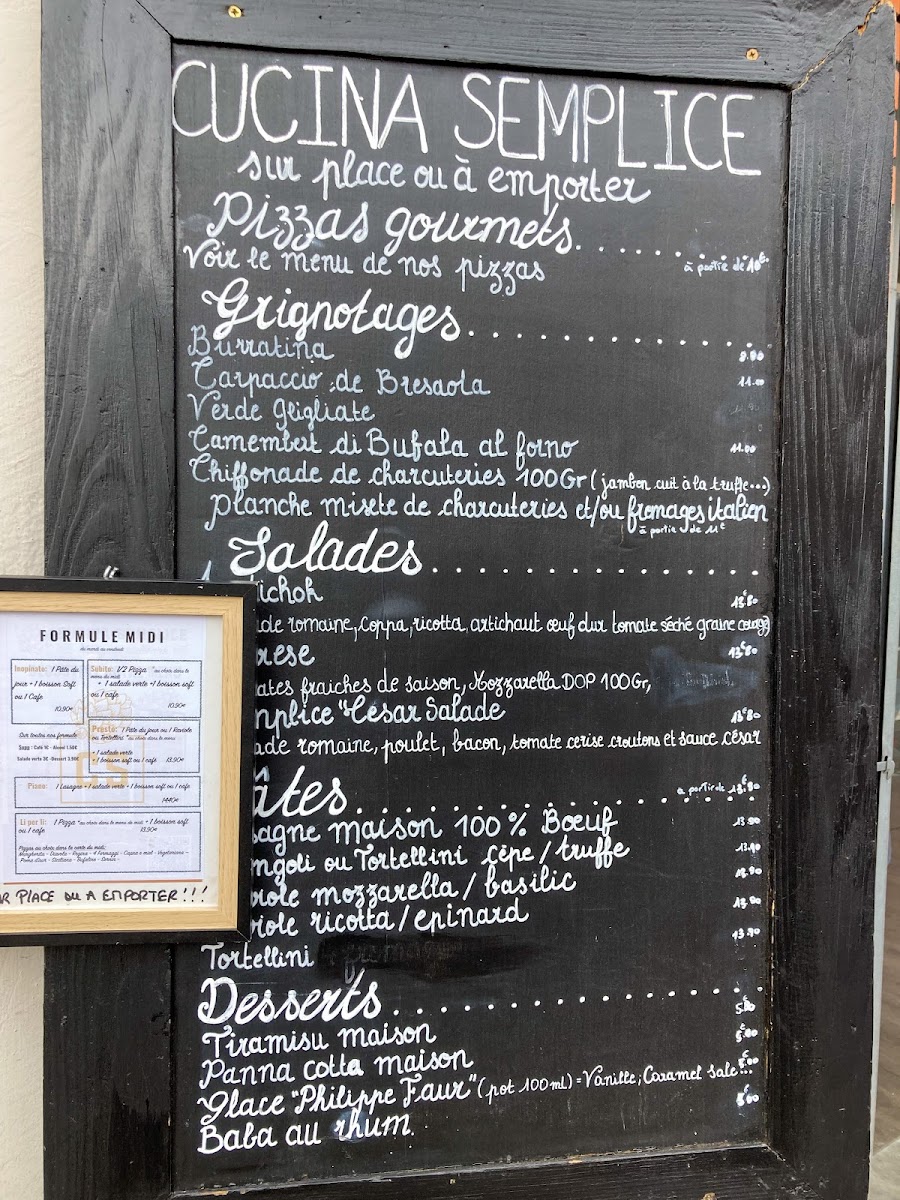 CUCINA SEMPLICE
sur place ou à emporter
Pizzas gourmets........
à partir de 10€
Voir le menu de nos pizzas
Grignotages...............
Burratina 9.80
Carpaccio de Bresaola 11.00
Verde Gligliate
Camembert di Bufala al forno 11.00
Chiffonade de charcuteries 100Gr (jambon cuit à la truffe...)
Planche mixte de charcuteries et/ou fromages italien
à partir de 11€
Salades.................
ichok 13.80
ade romaine, coppa, ricotta, artichaut œuf dur tomate séché graine
rese 13.80
ates fraiches de saison, Mozzarella DOP 100Gr,
mplice "César Salade 13.80
ade romaine, poulet, bacon, tomate cerise croutons et sauce césar
âtes............... à partir de 13.80
agne maison 100% Bœuf 13.90
ngoli ou Tortellini cèpe / truffe 13.90
iole mozzarella / basilic
iole ricotta / epinard 13.90
Tortellini 13.90
Desserts..................
Tiramisu maison
Panna cotta maison
Glace "Philippe Faur" (pot 100mL) = Vanille, Caramel salé...
Baba au rhum
FORMULE MIDI
du mardi au vendredi
1 Pâte du
jour + 1 boisson Soft
ou 1 Cafe
10.90€
Subito: 1/2 Pizza *au choix dans le
menu du midi
+ 1 salade verte + 1 boisson soft
ou 1 cafe
10.90€
Sur toutes nos formule
Supp : Café 1€ - Alcool 1.50€
Salade verte 3€ - Dessert 3.90€
Presto: 1 Pâte du jour ou 1 Raviole
ou Tortellini *au choix dans le menu
+ 1 salade verte
+ 1 boisson soft ou 1 cafe 13.90€
CS
Piano: 1 Lasagne + 1 salade verte + 1 boisson soft ou 1 cafe
14.40€
Li per li: 1 Pizza *au choix dans le menu du midi + 1 boisson soft
ou 1 cafe 13.90€
Pizzas au choix dans le menu du midi:
R PLACE OU A EMPORTER!!!